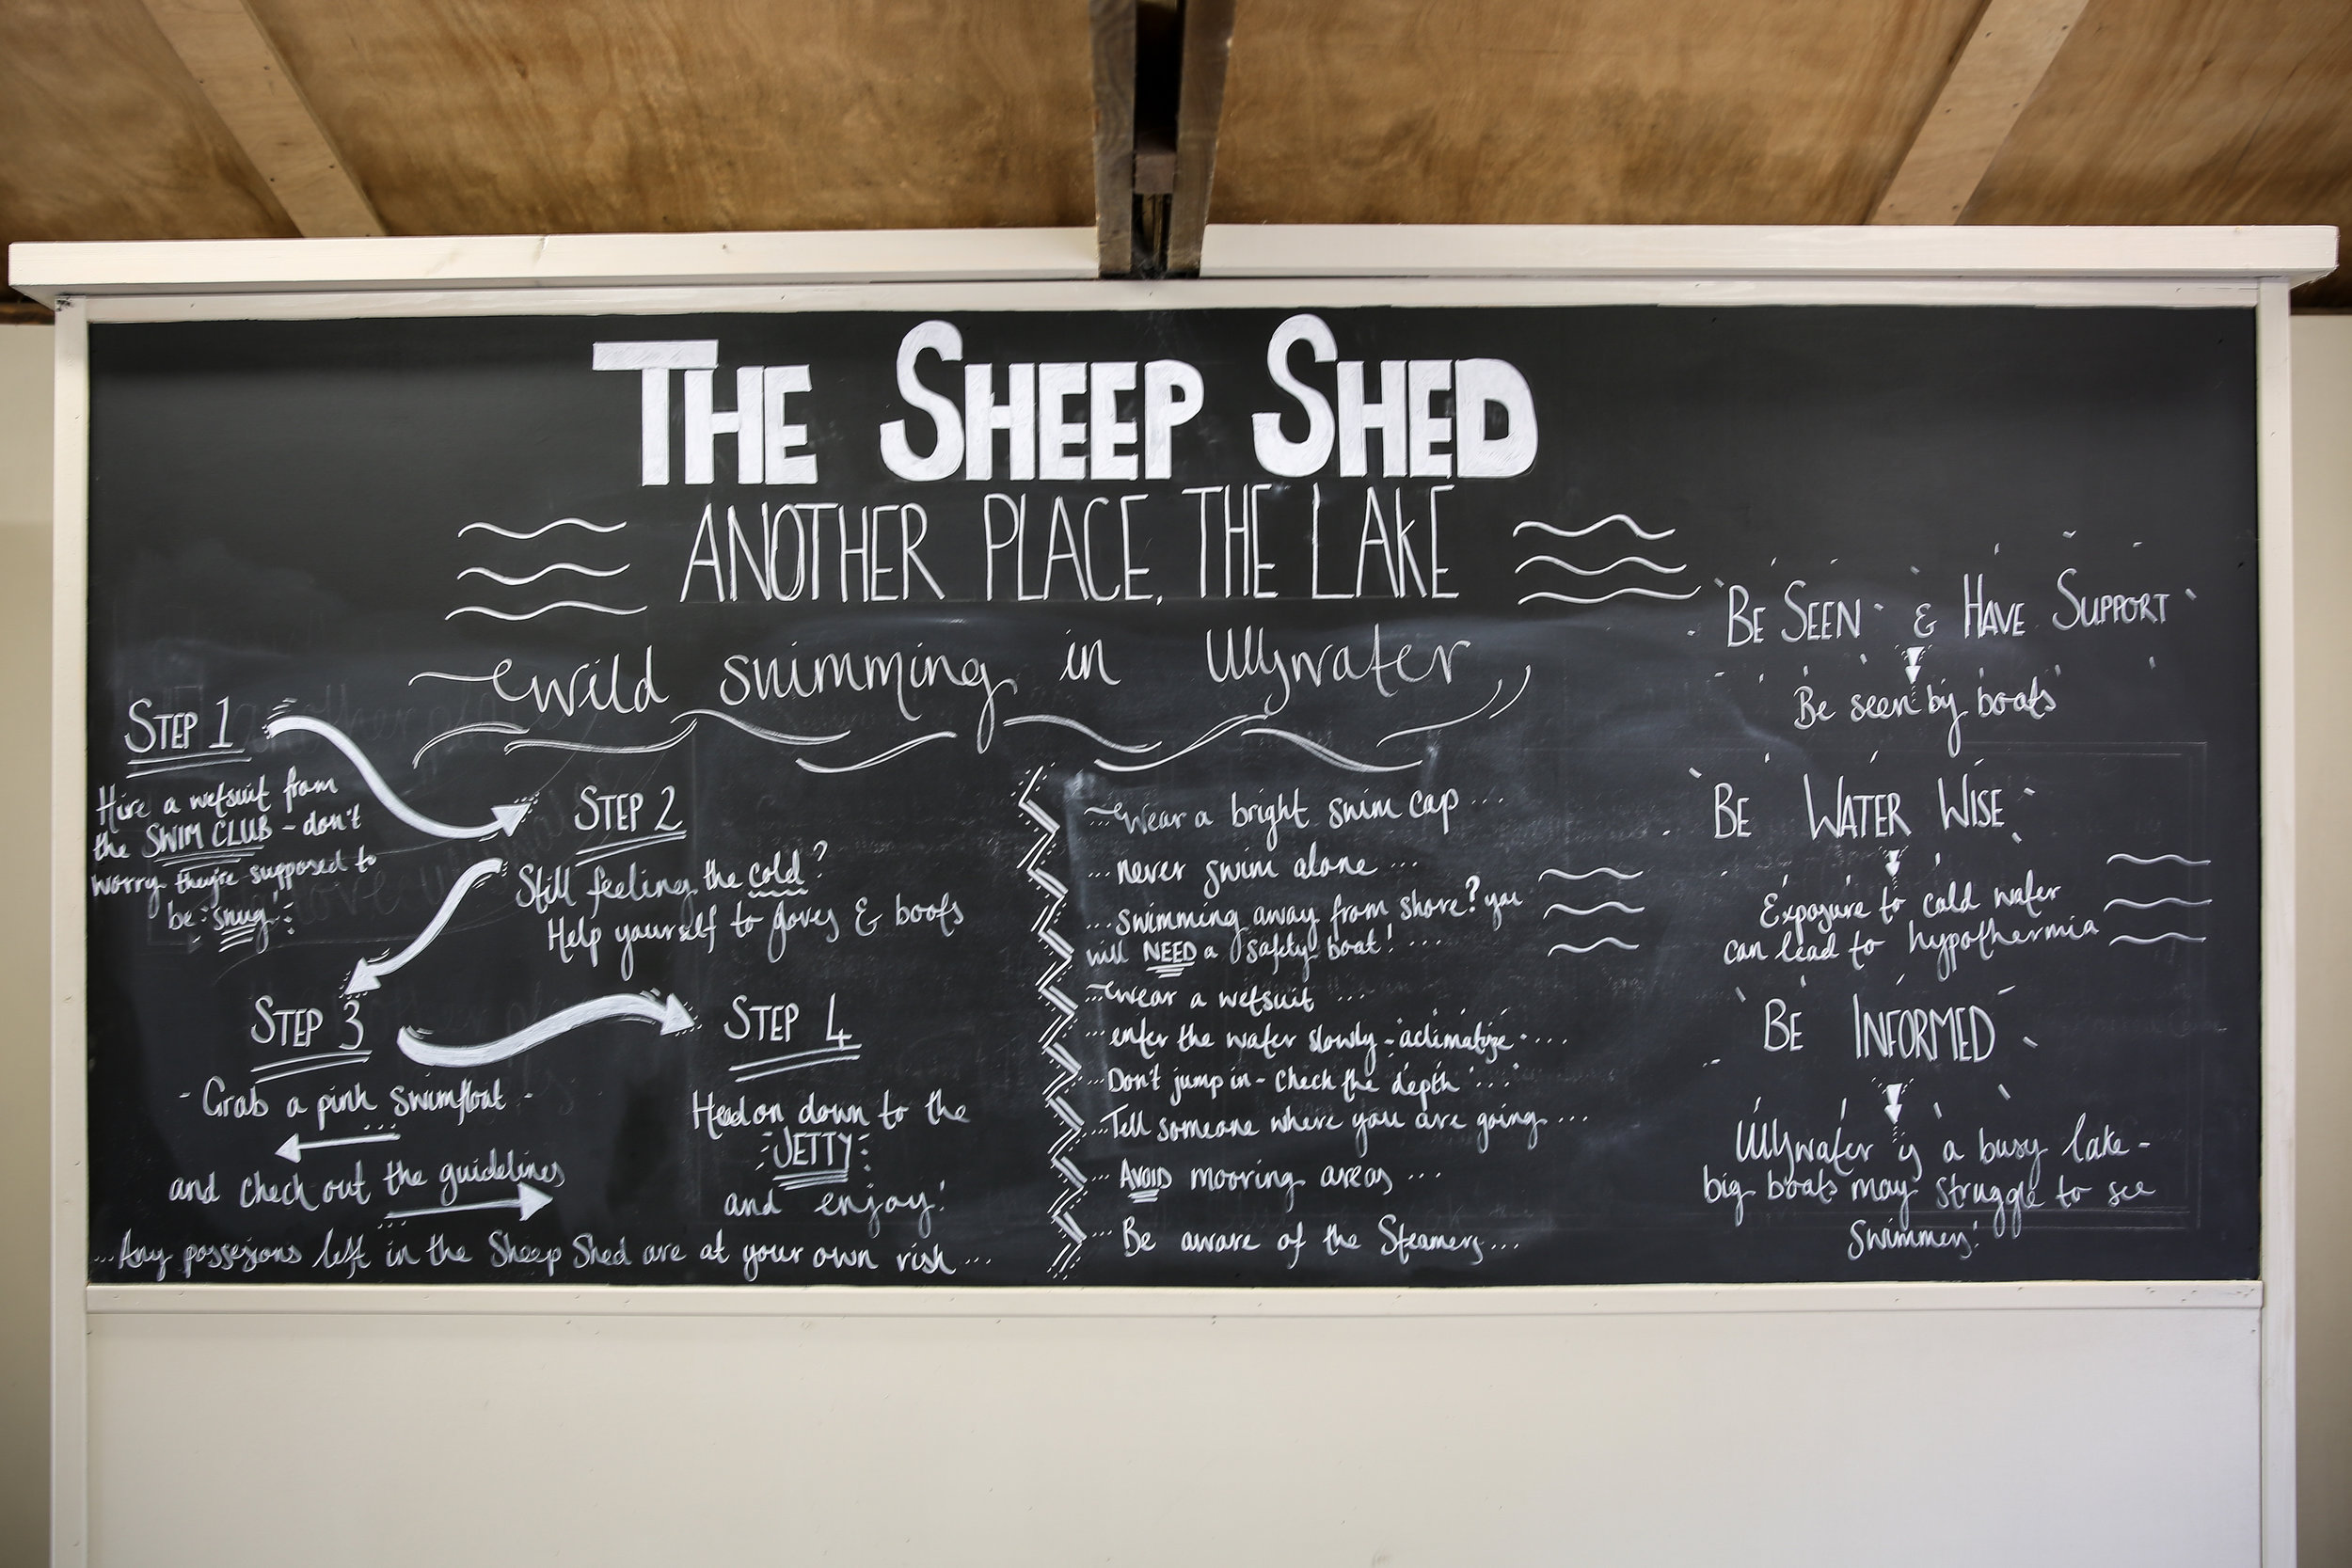 THE SHEEP SHED
ANOTHER PLACE, THE LAKE
Wild swimming in Ullswater
STEP 1
Hire a wetsuit from
the SWIM CLUB - don't
worry they're supposed to
be snug!
STEP 2
Still feeling the cold?
Help yourself to gloves & boots
STEP 3
- Grab a pink swimfloat -
and check out the guidelines
STEP 4
Head on down to the
JETTY
and enjoy!
...Any possesions left in the Sheep Shed are at your own risk...
...Wear a bright swim cap...
...never swim alone...
...swimming away from shore? you
will NEED a safety boat!...
...Wear a wetsuit...
...enter the water slowly - aclimatize....
...Don't jump in - check the depth...
...Tell someone where you are going...
...AVOID mooring areas...
...Be aware of the Steamers...
BE SEEN & HAVE SUPPORT
Be seen by boats
BE WATER WISE
Exposure to cold water
can lead to hypothermia
BE INFORMED
Ullswater is a busy lake -
big boats may struggle to see
Swimmers!